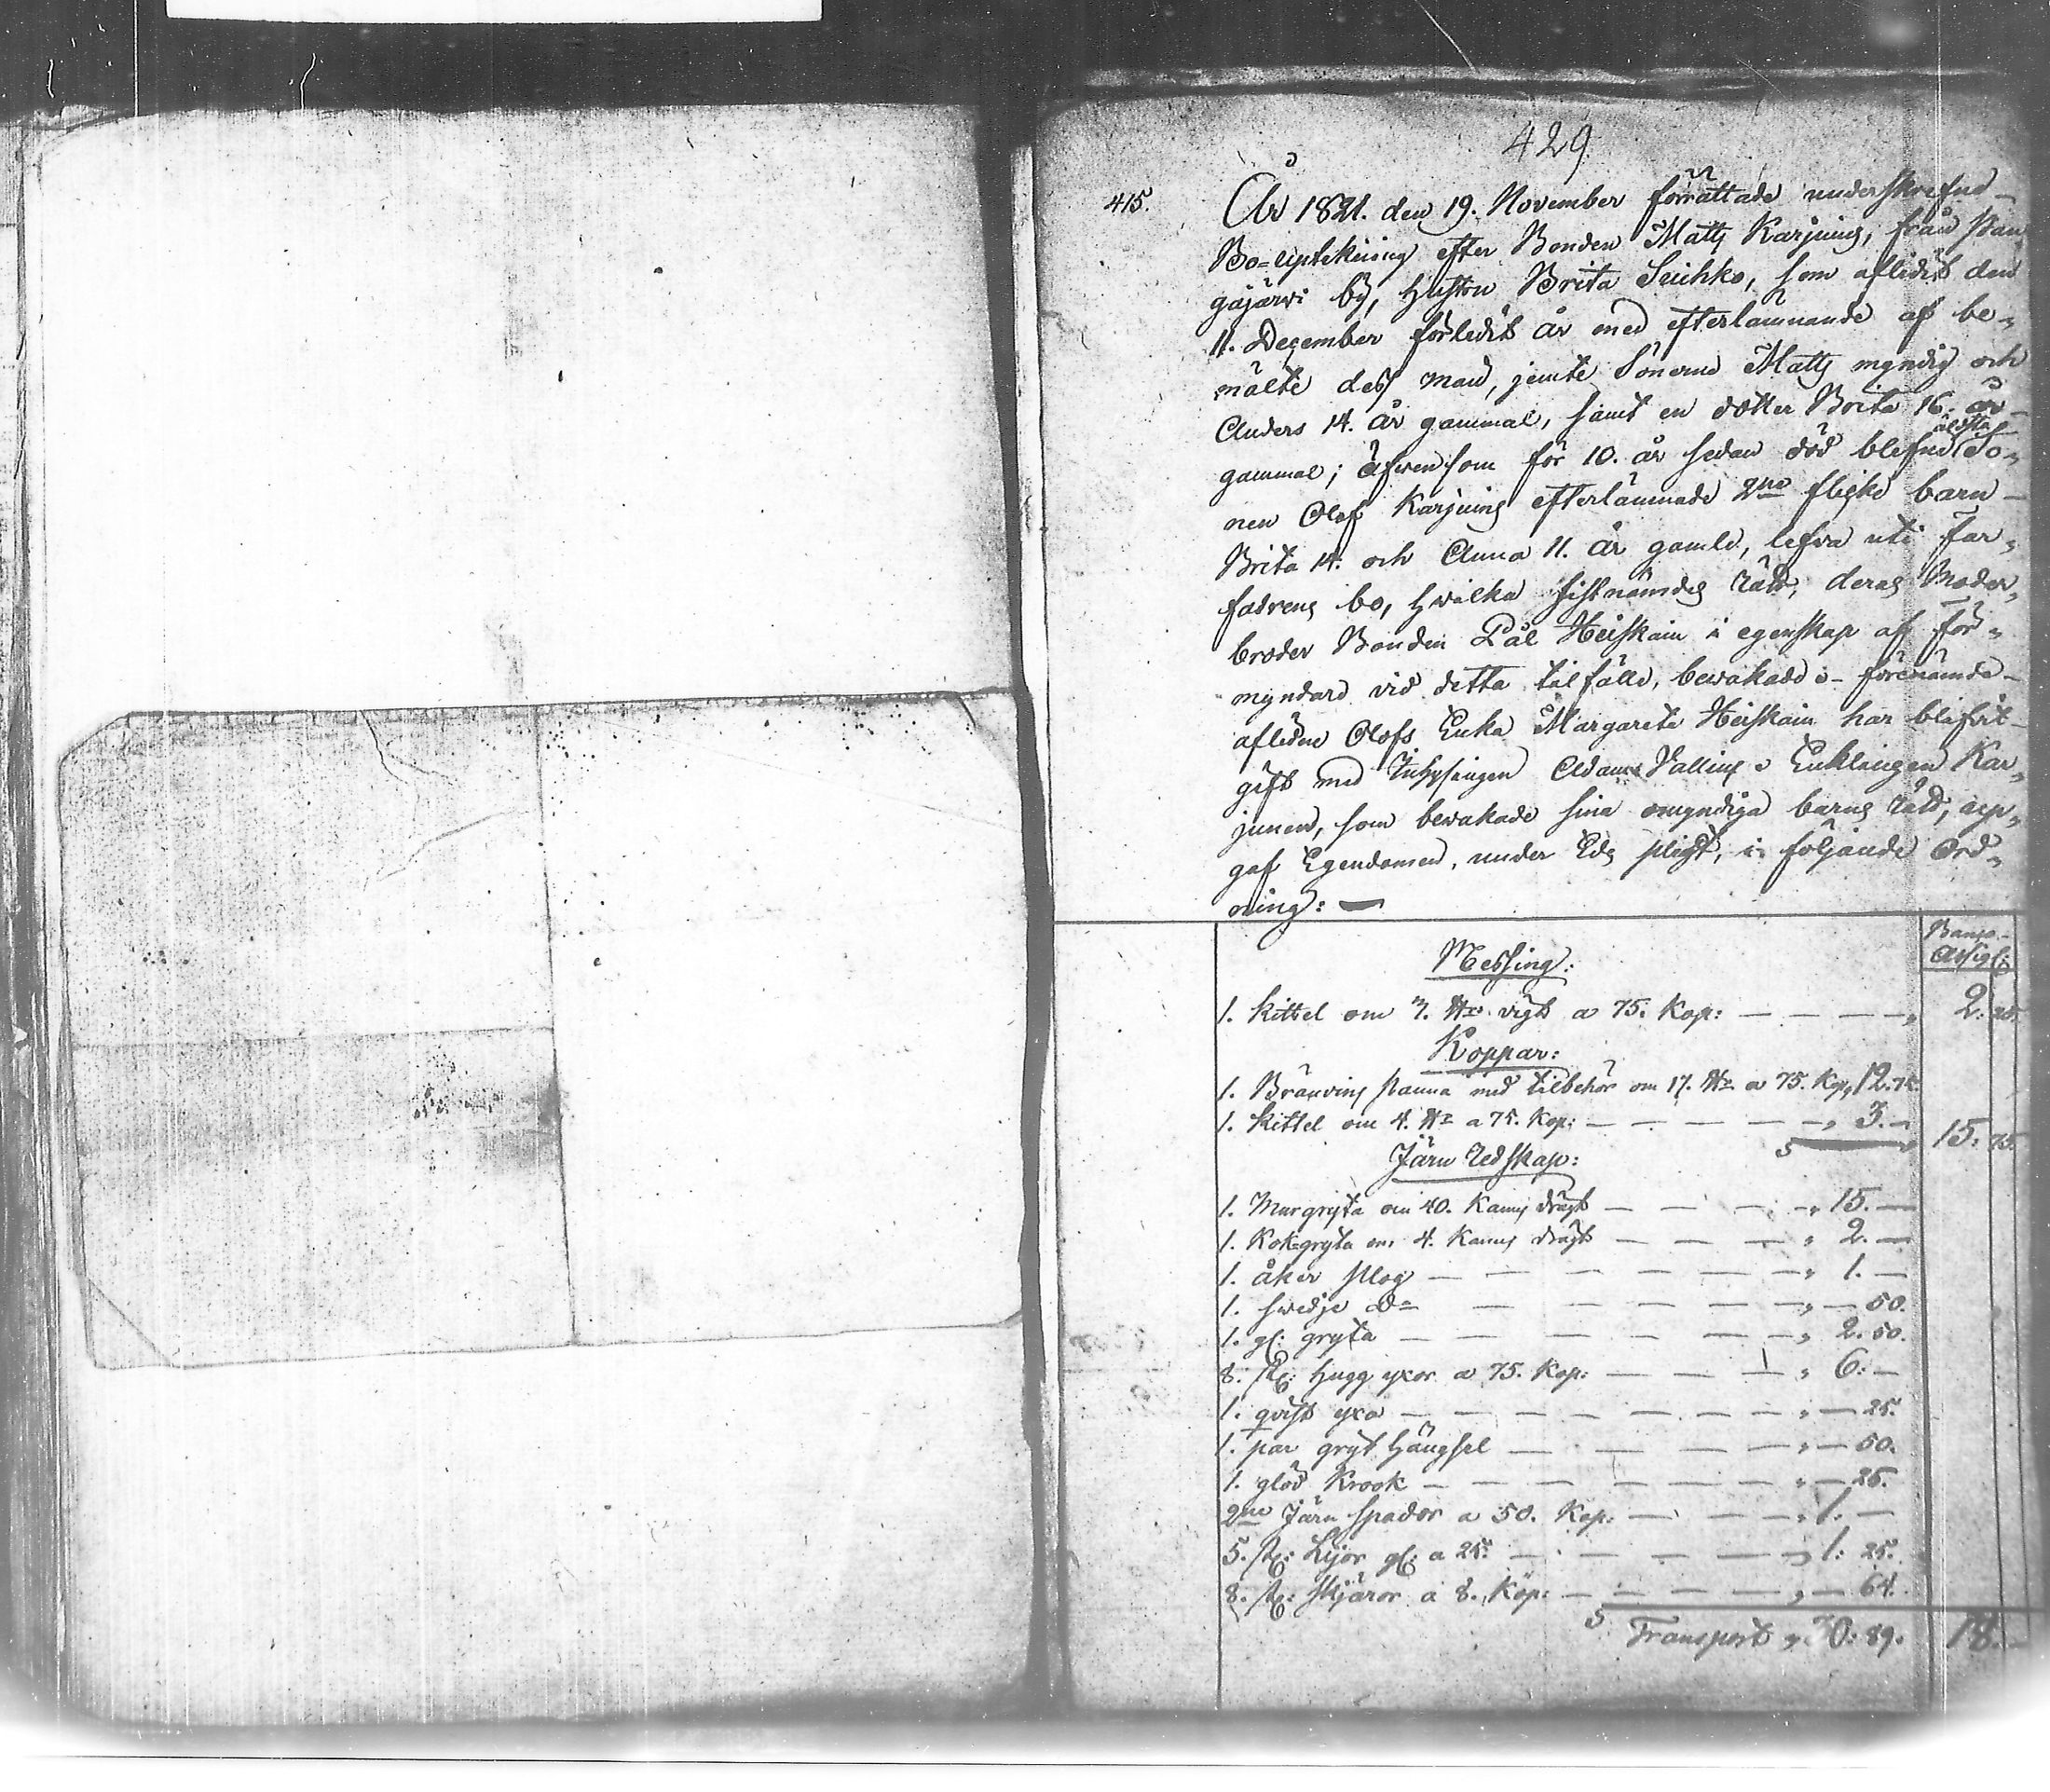 429
415.
År 1821. den 19. November förrättade underskrefne
Bo=uptekning efter Bonden Matts Karjuins, från Kan„
gajärwi by, hustru Brita Seuhko, som aflidit den
11. December förledit år med efterlämnande af be„
mälte dess man, jemte Sönerne Matts myndig och
Anders 14. år gammal, samt en dotter Brita 16. år
gammal; äfwensom för 10. år sedan död blefne äldsta So„
nen Olof Karjuins efterlämnade 2ne flicke barn
Brita 14. och Anna 11. år gamle, lefva uti Far„
fadrens bo, hwilka sistnämdes rätt, deras Moder„
broder Bonden Pål Heiskain i egenskap af För„
myndare vid detta tilfälle, bewakade förenämde
afledne Olofs Enka Margareta Heiskain har blifvit
gift med Inhysingen Adam Vallius Enklingen Kar„
junen, som bewakade sina omyndiga barns rätt, up„
gaf Egendomen, under Eds pligt, i följande Ord„
ning: —
Banco
Assigl:
Messing:
1. kittel om 3. ℔r vigt a 75. Kop: — — — — „ 2. 25.
Koppar:
1. Bränvins panna med tilbehör om 17. ℔r a 75. Kop„ 12. 75.
1. kittel om 4. ℔r a 75. Kop: — — — — „ 3. —
15. 75.
Järn redskap:
1. Murgryta om 40. Kanns drägt — — — „ 15. —
1. Kokgryta om 4. Kanns drägt — — — „ 2. —
1. åker plog — — — — — „ 1. —
1. swedje do — — — — „ — 50.
1. gl: gryta — — — — — „ 2. 50.
8. st: hugg yxor a 75. Kop: — — — „ 6: —
1. qvist yxa — — — — — „ — 25.
1. par gryt hängsel — — — — „ — 50.
1. glöd Krook — — — — — „ — 25.
2ne Järn spador a 50. Kop: — — — „ 1. —
5. st: Lijor gl: a 25. — — — — „ 1: 25.
8. st: skjäror a 8. Kop: — — — — „ — 64.
Transport „ 30: 89. 18. —